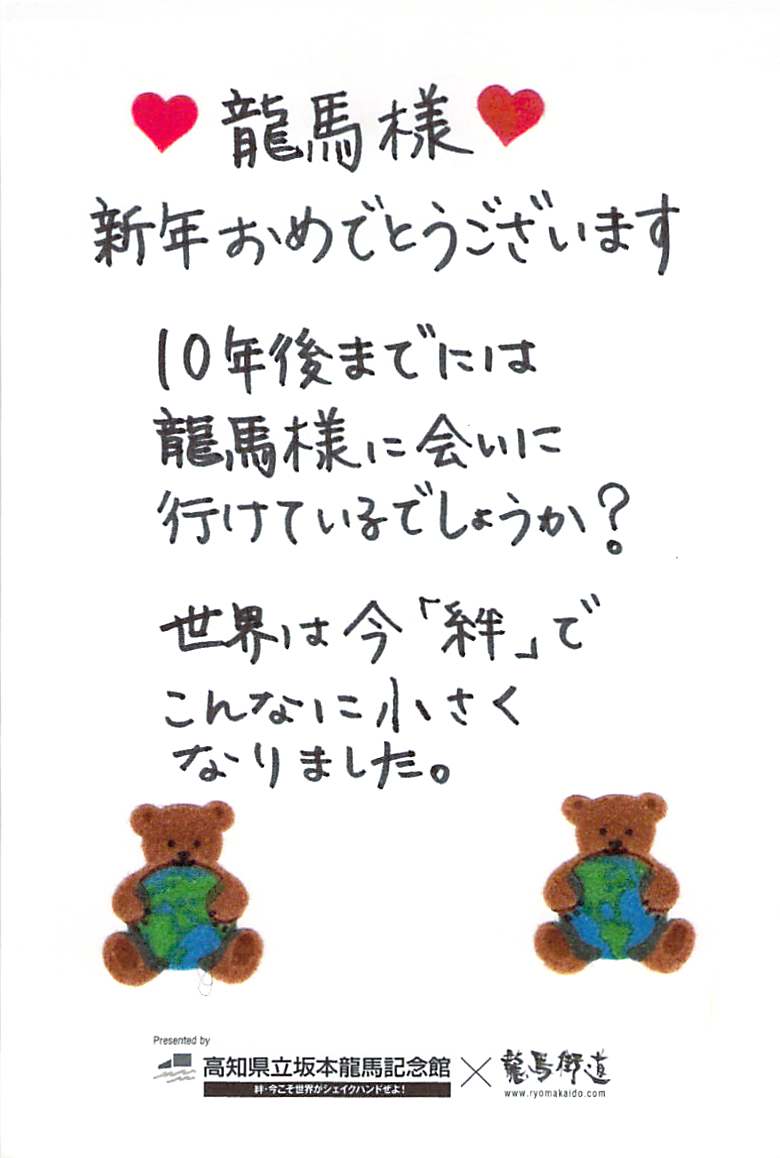 龍馬様
新年おめでとうございます
10年後までには
龍馬様に会いに
行けているでしょうか?
世界は今「絆」で
こんなに小さく
なりました。
Presented by
高知県立坂本龍馬記念館 × 龍馬街道
絆・今こそ世界がシェイクハンドせよ!
www.ryomakaido.com